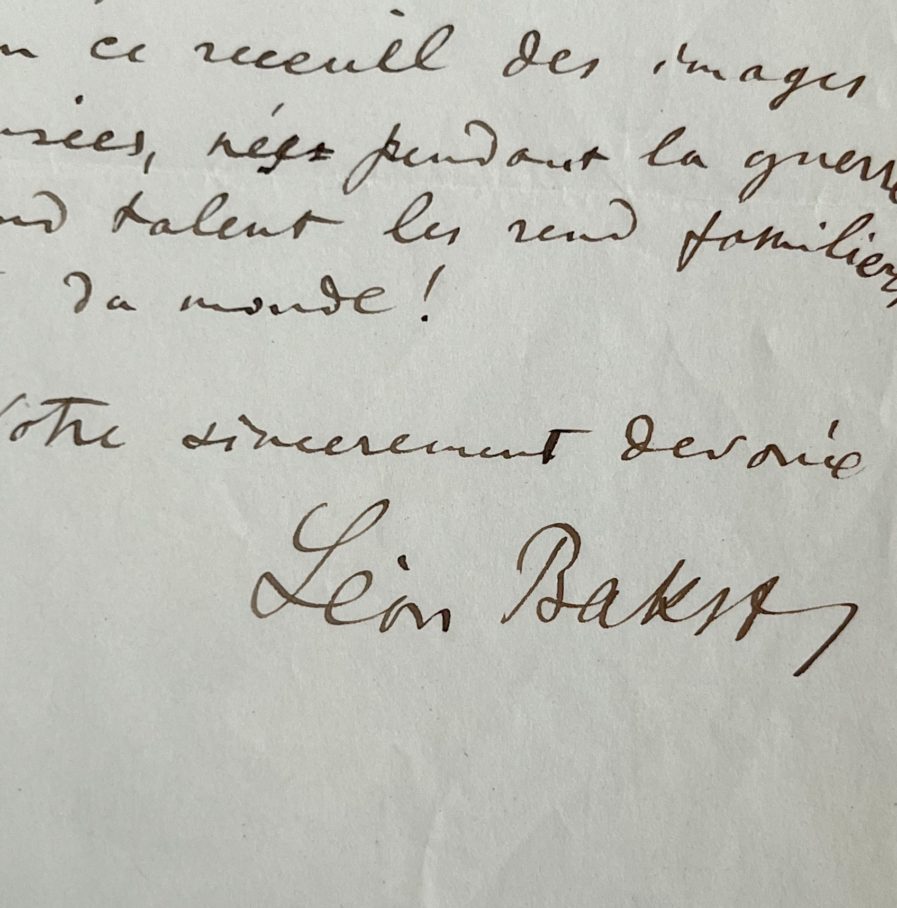 ce receuill des images
nées pendant la guerre
talent les rend familier
du monde!
Votre sincerement devouée
Léon Bakst